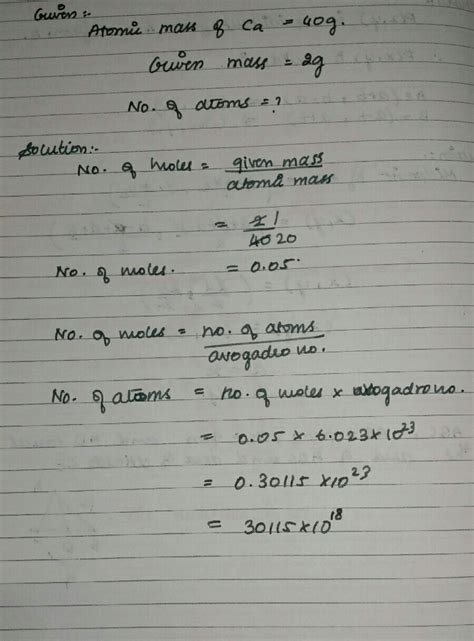 Given :-
Atomic mass of Ca = 40g.
Given mass = 2g
No. of atoms = ?
Solution:-
No. of moles = given mass / atomic mass
= 2 1 / 40 20
No. of moles. = 0.05
No. of moles = no. of atoms / avogadro no.
No. of atoms = no. of moles x avogadro no.
= 0.05 x 6.023 x 10²³
= 0.30115 x 10²³
= 30115 x 10¹⁸